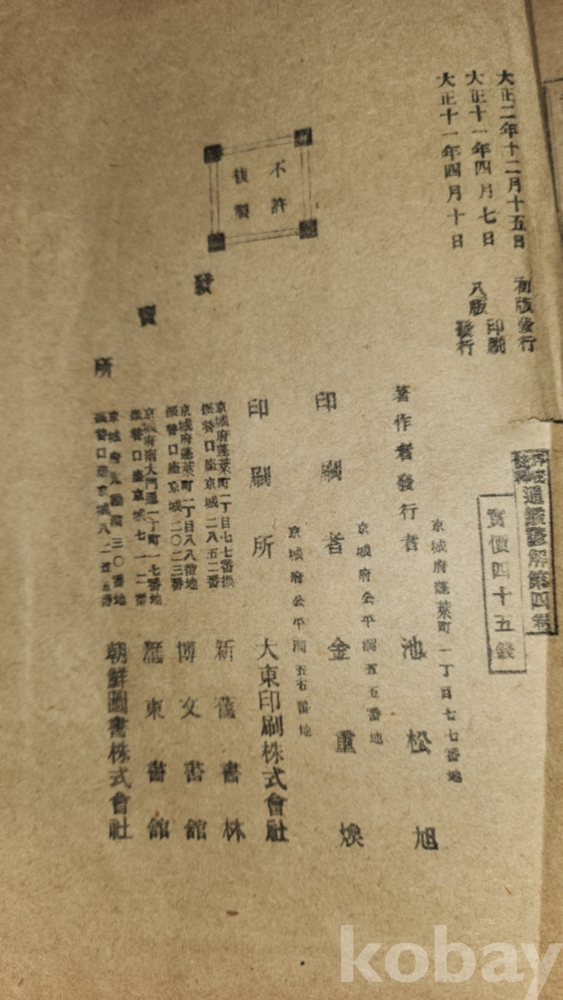 通鑑諺解第四卷
實價四十五錢
大正二年十二月十五日 初版發行
大正十一年四月七日 印刷
大正十一年四月十日 八版發行
不許
複製
京城府蓬萊町一丁目七七番地
著作者發行者 池松旭
京城府公平洞五五番地
印刷者 金重煥
京城府公平洞五五番地
印刷所 大東印刷株式會社
發賣所
京城府蓬萊町一丁目七七番地
振替口座京城二八五二番
新舊書林
京城府蓬萊町一丁目八八番地
振替口座京城二〇二三番
博文書館
京城府南大門通一丁町一七番地
振替口座京城七一二番
滙東書館
振替口座京城八二五五番
朝鮮圖書株式會社
kobay